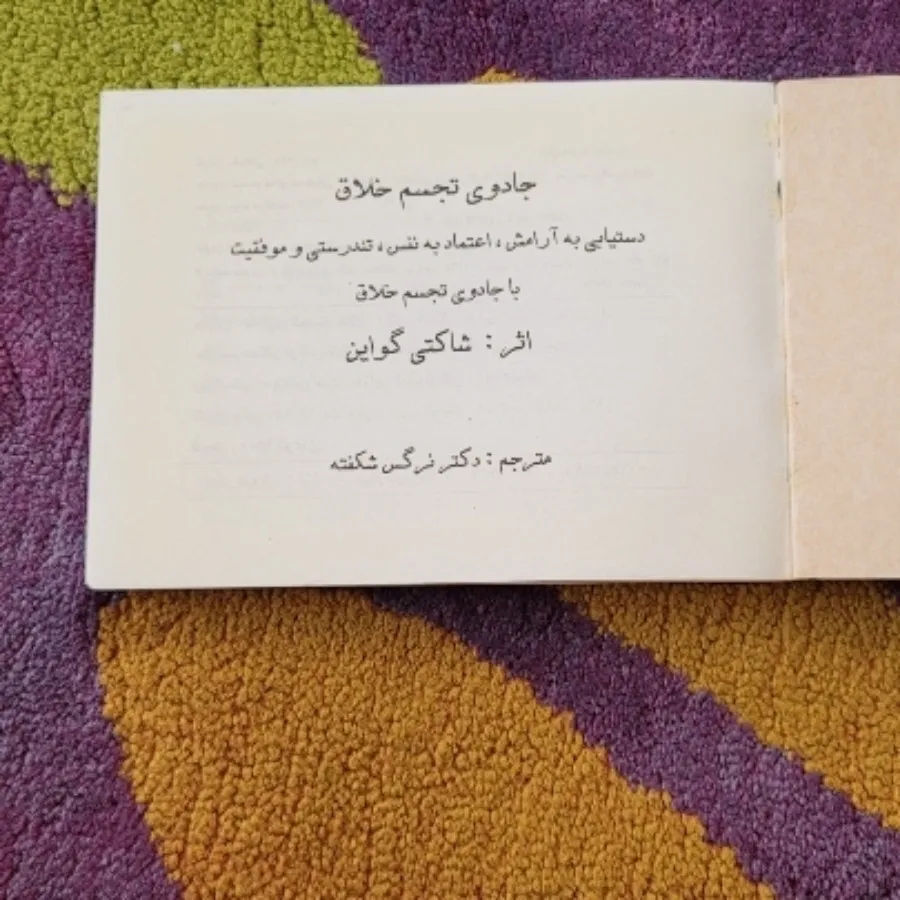 جادوی تجسم خلاق
دستیابی به آرامش، اعتماد به نفس، تندرستی و موفقیت
با جادوی تجسم خلاق
اثر: شاکتی گواین
مترجم: دکتر نرگس شکفته